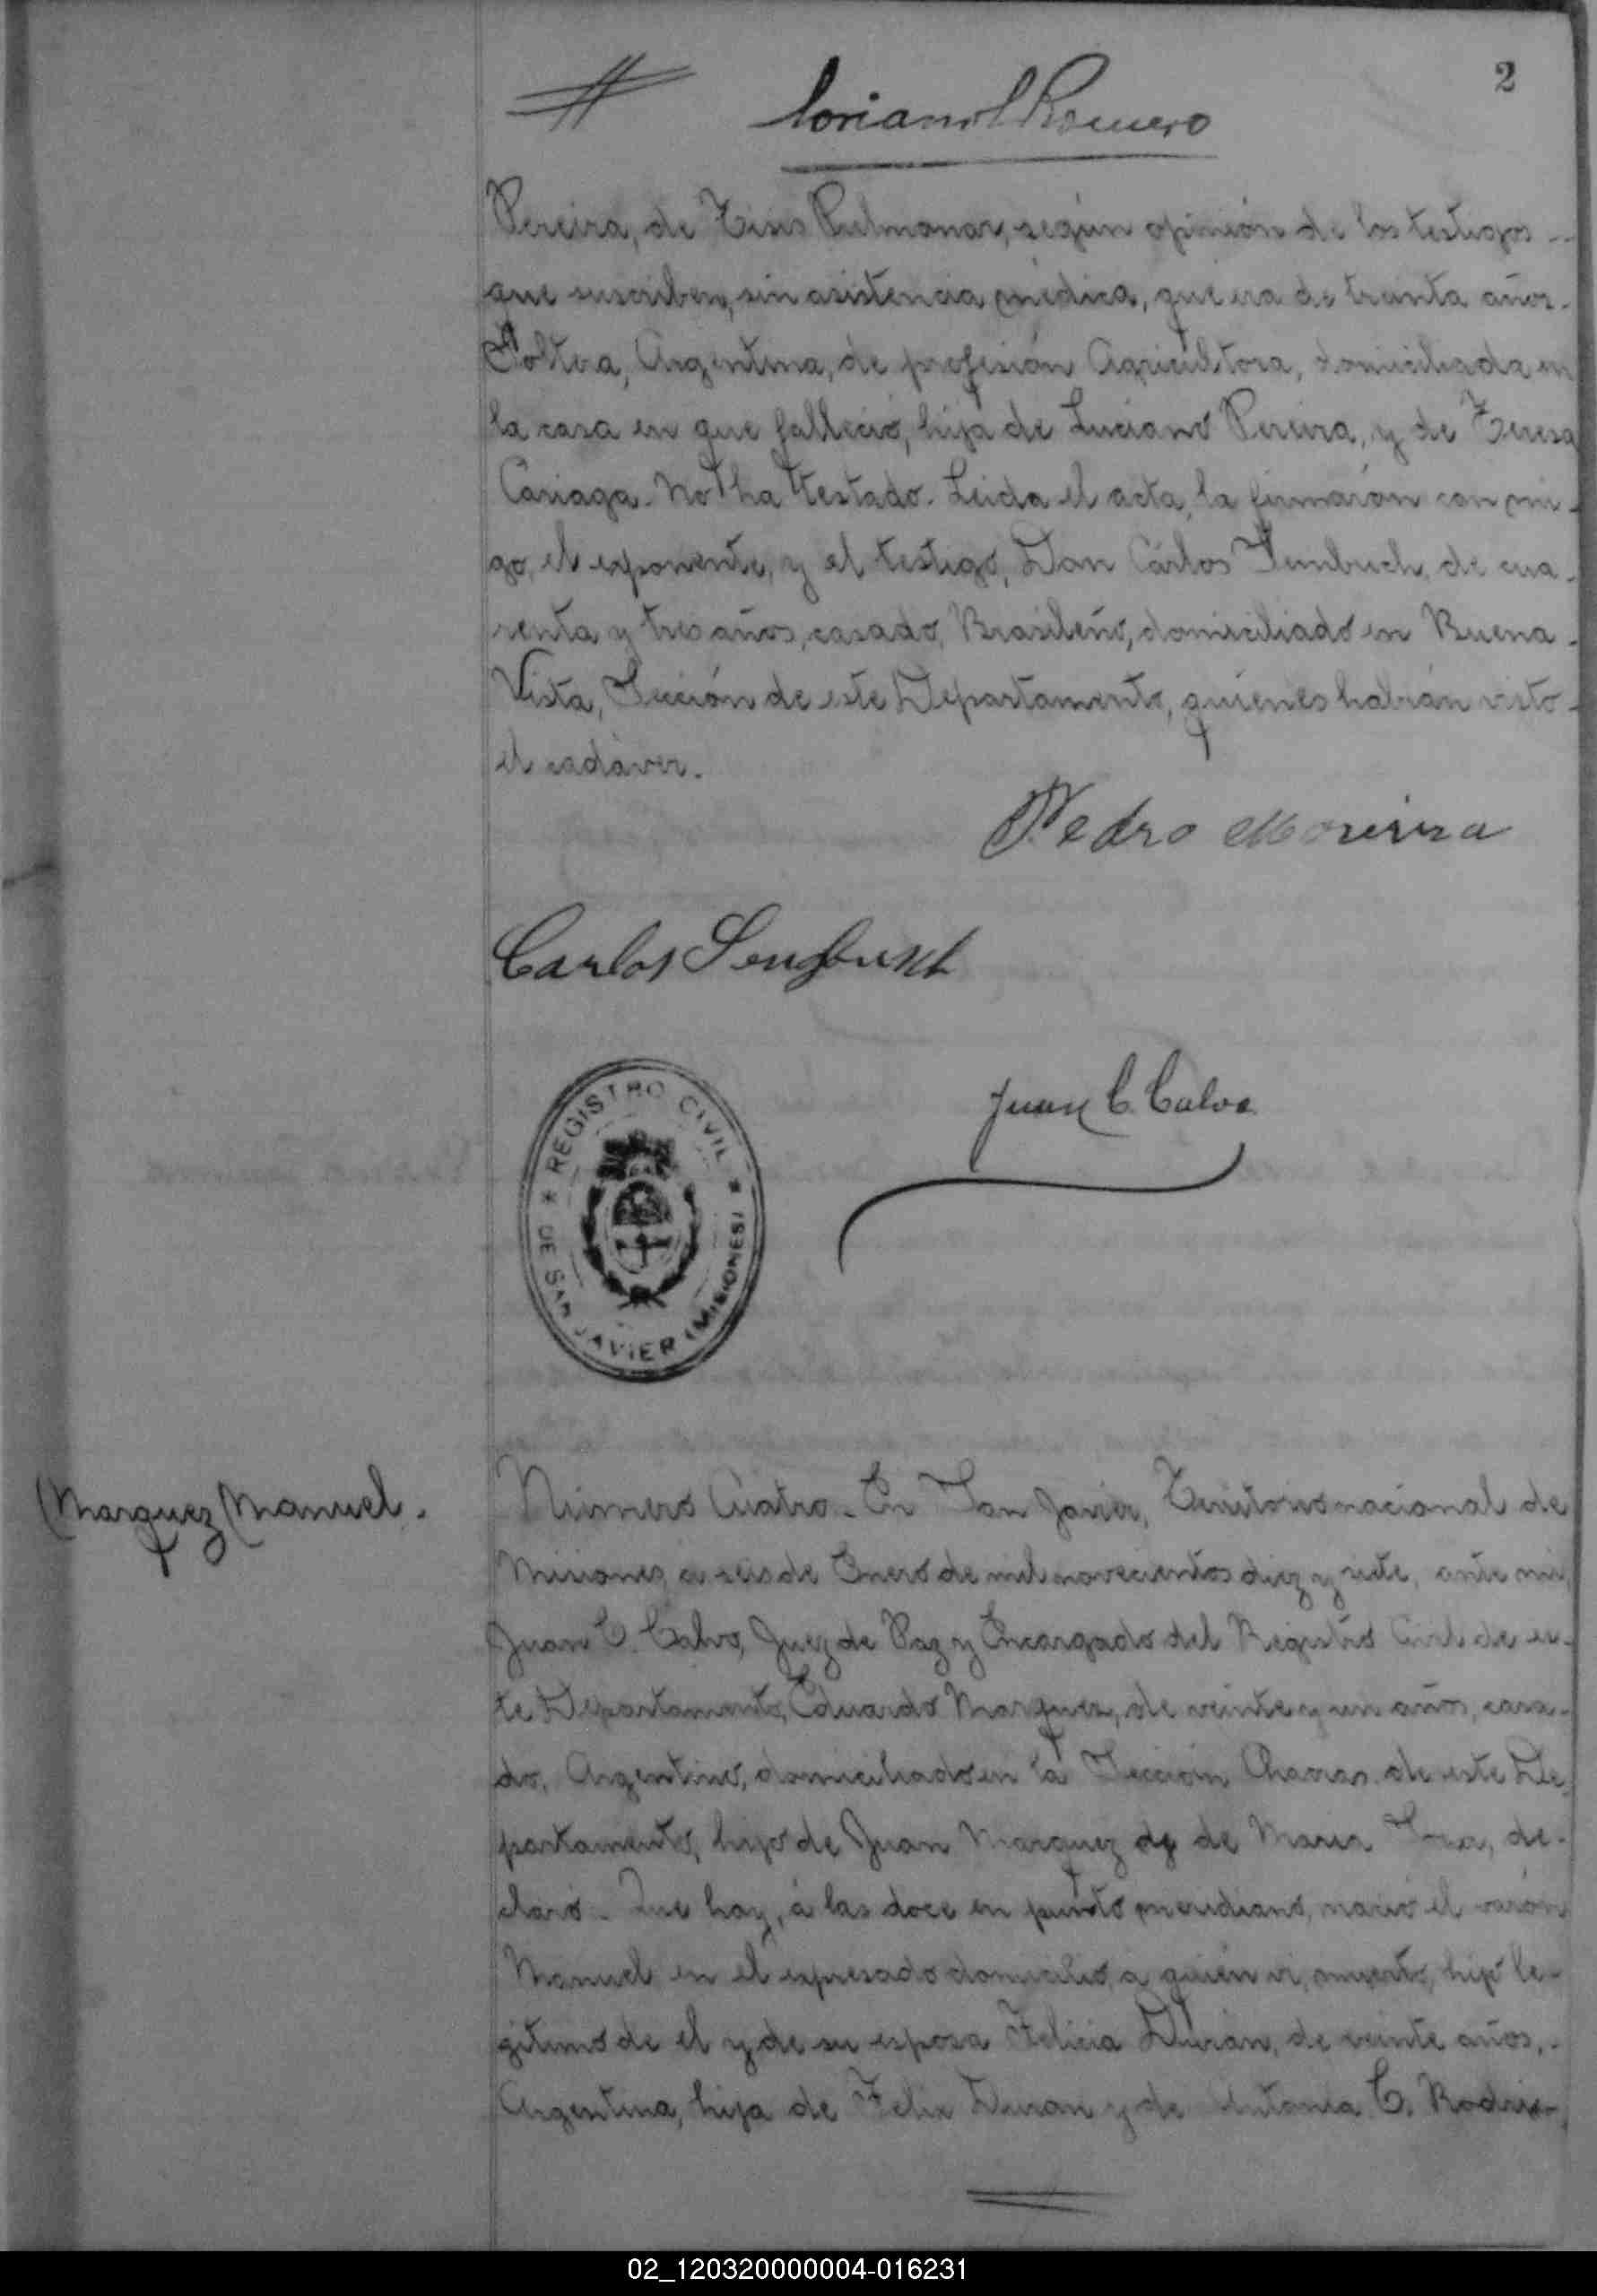 2
Romero
Pereira, de Tisis Pulmonar, según opinión de los testigos
que suscriben, sin asistencia médica, que era de treinta años.
Soltera, Argentina, de profesión Agricultora, domiciliada en
la casa en que falleció, hija de Luciano Pereira, y de Teresa
Cariaga. No ha testado. Leida el acta, la firmaron con mi-
go, el exponente, y el testigo, Don Cárlos de cua-
renta y tres años, casado, Brasileño, domiciliado en Buena
Vista, Sección de este Departamento, quienes habían visto
el cadáver.
Pedro Moreira
Carlos Sengbusch
Juan C. Calvo
* REGISTRO CIVIL *
DE SAN JAVIER (MISIONES)
Marquez Manuel.
Número Cuatro. En San Javier, Territorio nacional de
Misiones, a seis de Enero de mil novecientos diez y siete, ante mi,
Juan C. Calvo, Juez de Paz y Encargado del Registro Civil de es-
te Departamento, Eduardo Marquez, de veinte y un años, casa-
do, Argentino, domiciliado en la Sección Chacras de este De-
partamento, hijo de Juan Marquez de Maria de-
claró. Que hoy, á las doce en punto meridiano, nació el varón
Manuel en el expresado domicilio, a quién vi, muerto, hijo le-
gitimo de el y de su esposa Felicia Durán, de veinte años,
Argentina, hija de Felix Duran y de Antonia C. Rodri
02_120320000004-016231